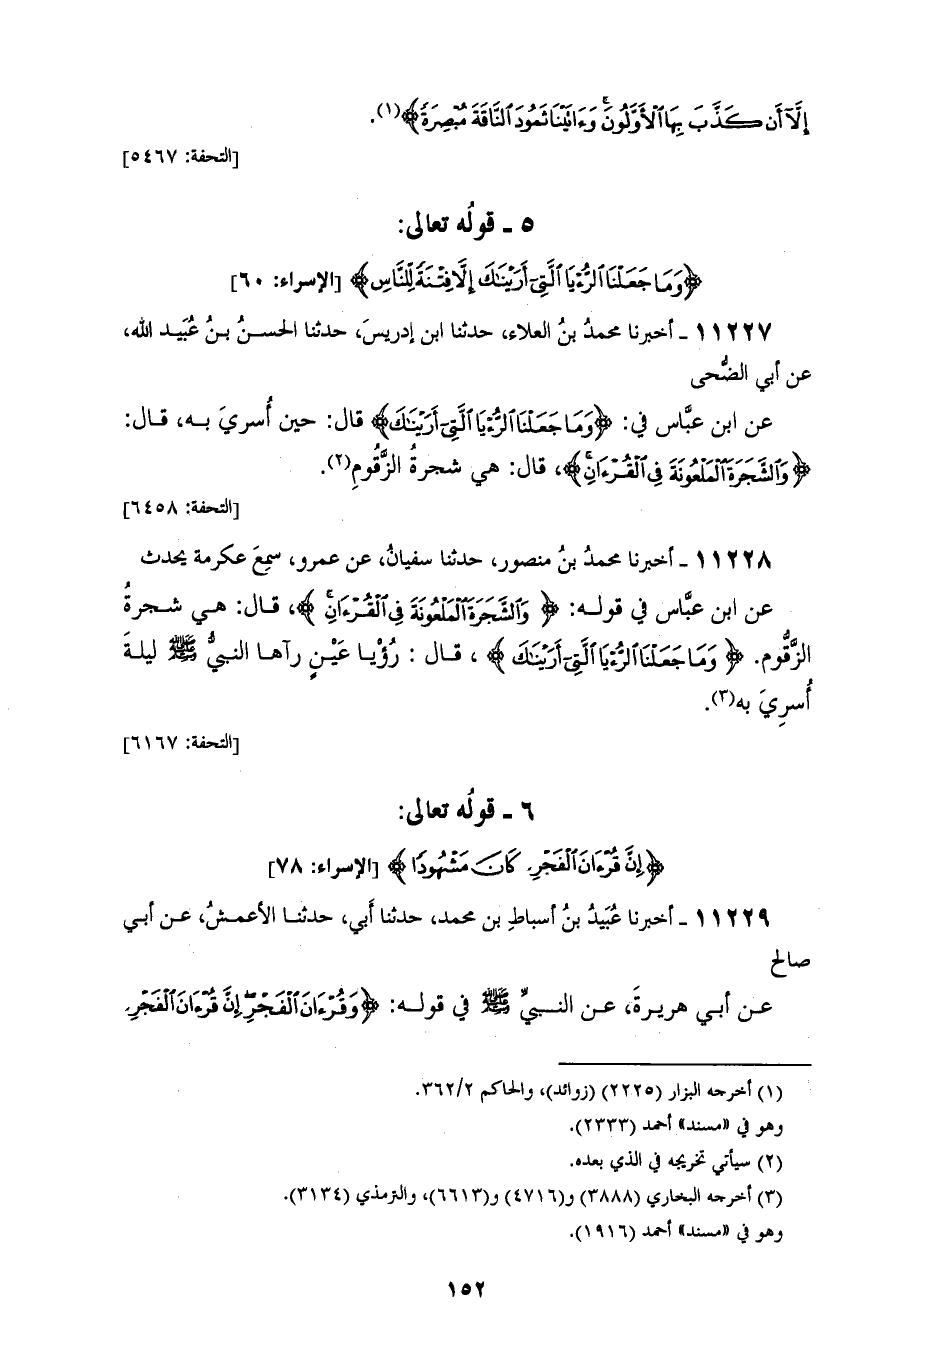 إِلَّآ أَن كَذَّبَ بِهَا ٱلْأَوَّلُونَ ۚ وَءَاتَيْنَا ثَمُودَ ٱلنَّاقَةَ مُبْصِرَةً﴾(١).
[التحفة: ٥٤٦٧]
٥ ـ قولُه تعالى:
﴿وَمَا جَعَلْنَا ٱلرُّءْيَا ٱلَّتِىٓ أَرَيْنَٰكَ إِلَّا فِتْنَةً لِّلنَّاسِ﴾ [الإسراء: ٦٠]
١١٢٢٧ ـ أخبرنا محمدُ بنُ العلاء، حدثنا ابن إدريسَ، حدثنا الحسنُ بنُ عُبَيد الله،
عن أبي الضُّحى
عن ابن عبَّاس في: ﴿وَمَا جَعَلْنَا ٱلرُّءْيَا ٱلَّتِىٓ أَرَيْنَٰكَ﴾ قال: حين أُسريَ به، قال:
﴿وَٱلشَّجَرَةَ ٱلْمَلْعُونَةَ فِى ٱلْقُرْءَانِ ۚ﴾، قال: هي شجرةُ الزَّقُّومِ(٢).
[التحفة: ٦٤٥٨]
١١٢٢٨ ـ أخبرنا محمدُ بنُ منصور، حدثنا سفيانُ، عن عمرو، سمِعَ عكرمة يحدث
عن ابن عبَّاس في قوله: ﴿ وَٱلشَّجَرَةَ ٱلْمَلْعُونَةَ فِى ٱلْقُرْءَانِ ۚ ﴾، قال: هي شجرةُ
الزَّقُّوم. ﴿ وَمَا جَعَلْنَا ٱلرُّءْيَا ٱلَّتِىٓ أَرَيْنَٰكَ ﴾ ، قال : رُؤْيا عَيْنٍ رآها النبيُّ ﷺ ليلةَ
أُسرِيَ به(٣).
[التحفة: ٦١٦٧]
٦ ـ قولُه تعالى:
﴿إِنَّ قُرْءَانَ ٱلْفَجْرِ كَانَ مَشْهُودًا ﴾ [الإسراء: ٧٨]
١١٢٢٩ ـ أخبرنا عُبَيدُ بنُ أسباطِ بن محمد، حدثنا أَبي، حدثنا الأعمشُ، عن أبي
صالح
عن أبي هريرةَ، عن النبيِّ ﷺ في قوله: ﴿وَقُرْءَانَ ٱلْفَجْرِ ۖ إِنَّ قُرْءَانَ ٱلْفَجْرِ
(١) أخرجه البزار (٢٢٢٥) (زوائد)، والحاكم ٣٦٢/٢.
وهو في «مسند» أحمد (٢٣٣٣).
(٢) سيأتي تخريجه في الذي بعده.
(٣) أخرجه البخاري (٣٨٨٨) و(٤٧١٦) و(٦٦١٣)، والترمذي (٣١٣٤).
وهو في «مسند» أحمد (١٩١٦).
١٥٢